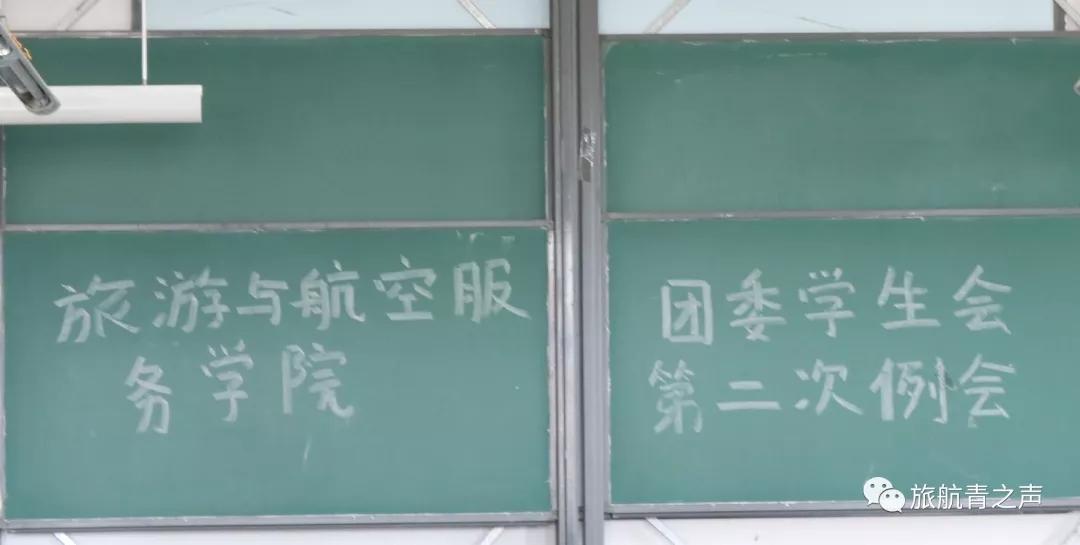 旅游与航空服
务学院
团委学生会
第二次例会
旅航青之声